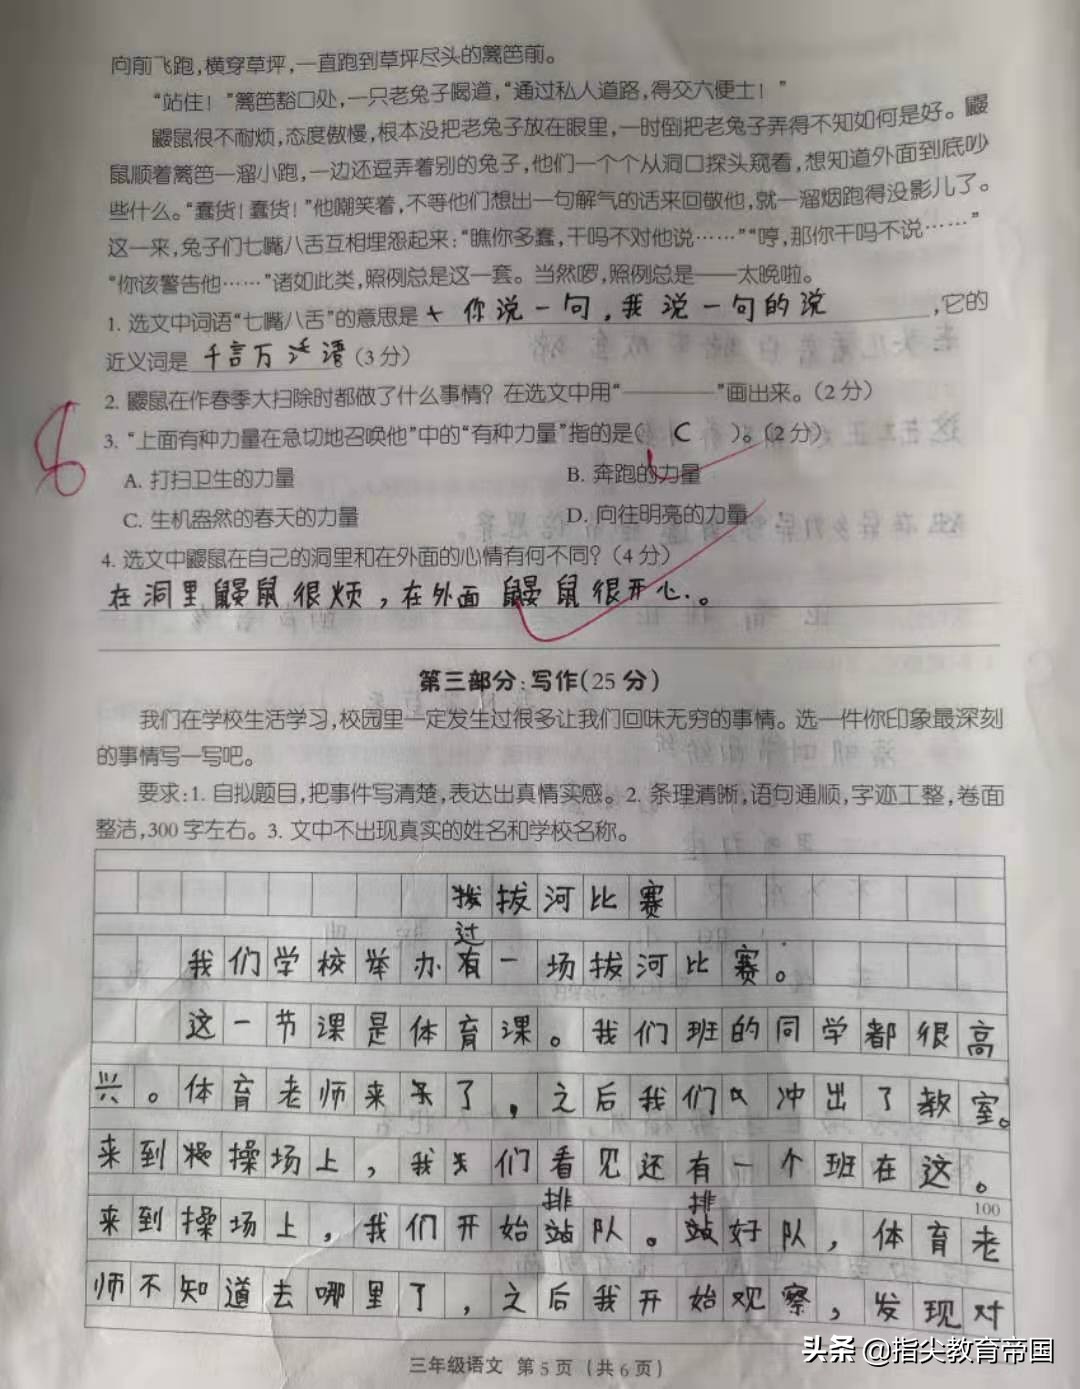 向前飞跑，横穿草坪，一直跑到草坪尽头的篱笆前。
“站住！”篱笆豁口处，一只老兔子喝道，“通过私人道路，得交六便士！”
鼹鼠很不耐烦，态度傲慢，根本没把老兔子放在眼里，一时倒把老兔子弄得不知如何是好。鼹
鼠顺着篱笆一溜小跑，一边还逗弄着别的兔子，他们一个个从洞口探头窥看，想知道外面到底吵
些什么。“蠢货！蠢货！”他嘲笑着，不等他们想出一句解气的话来回敬他，就一溜烟跑得没影儿了。
这一来，兔子们七嘴八舌互相埋怨起来：“瞧你多蠢，干吗不对他说……”“哼，那你干吗不说……”
“你该警告他……”诸如此类，照例总是这一套。当然啰，照例总是——太晚啦。
1. 选文中词语“七嘴八舌”的意思是 你说一句，我说一句的说，它的
近义词是 千言万语（3分）
2. 鼹鼠在作春季大扫除时都做了什么事情？在选文中用“————”画出来。（2分）
8
3. “上面有种力量在急切地召唤他”中的“有种力量”指的是（ C ）。（2分）
A. 打扫卫生的力量 B. 奔跑的力量
C. 生机盎然的春天的力量 D. 向往明亮的力量
4. 选文中鼹鼠在自己的洞里和在外面的心情有何不同？（4分）
在洞里鼹鼠很烦，在外面鼹鼠很开心。
第三部分：写作（25分）
我们在学校生活学习，校园里一定发生过很多让我们回味无穷的事情。选一件你印象最深刻
的事情写一写吧。
要求：1. 自拟题目，把事件写清楚，表达出真情实感。2. 条理清晰，语句通顺，字迹工整，卷面
整洁，300字左右。3. 文中不出现真实的姓名和学校名称。
拔河比赛
过
我们学校举办有一场拔河比赛。
这一节课是体育课。我们班的同学都很高
兴。体育老师来了，之后我们冲出了教室。
来到操场上，我们看见还有一个班在这。
排 排
100
来到操场上，我们开始站队。站好队，体育老
师不知道去哪里了，之后我开始观察，发现对
三年级语文 第5页（共6页）
头条 @指尖教育帝国